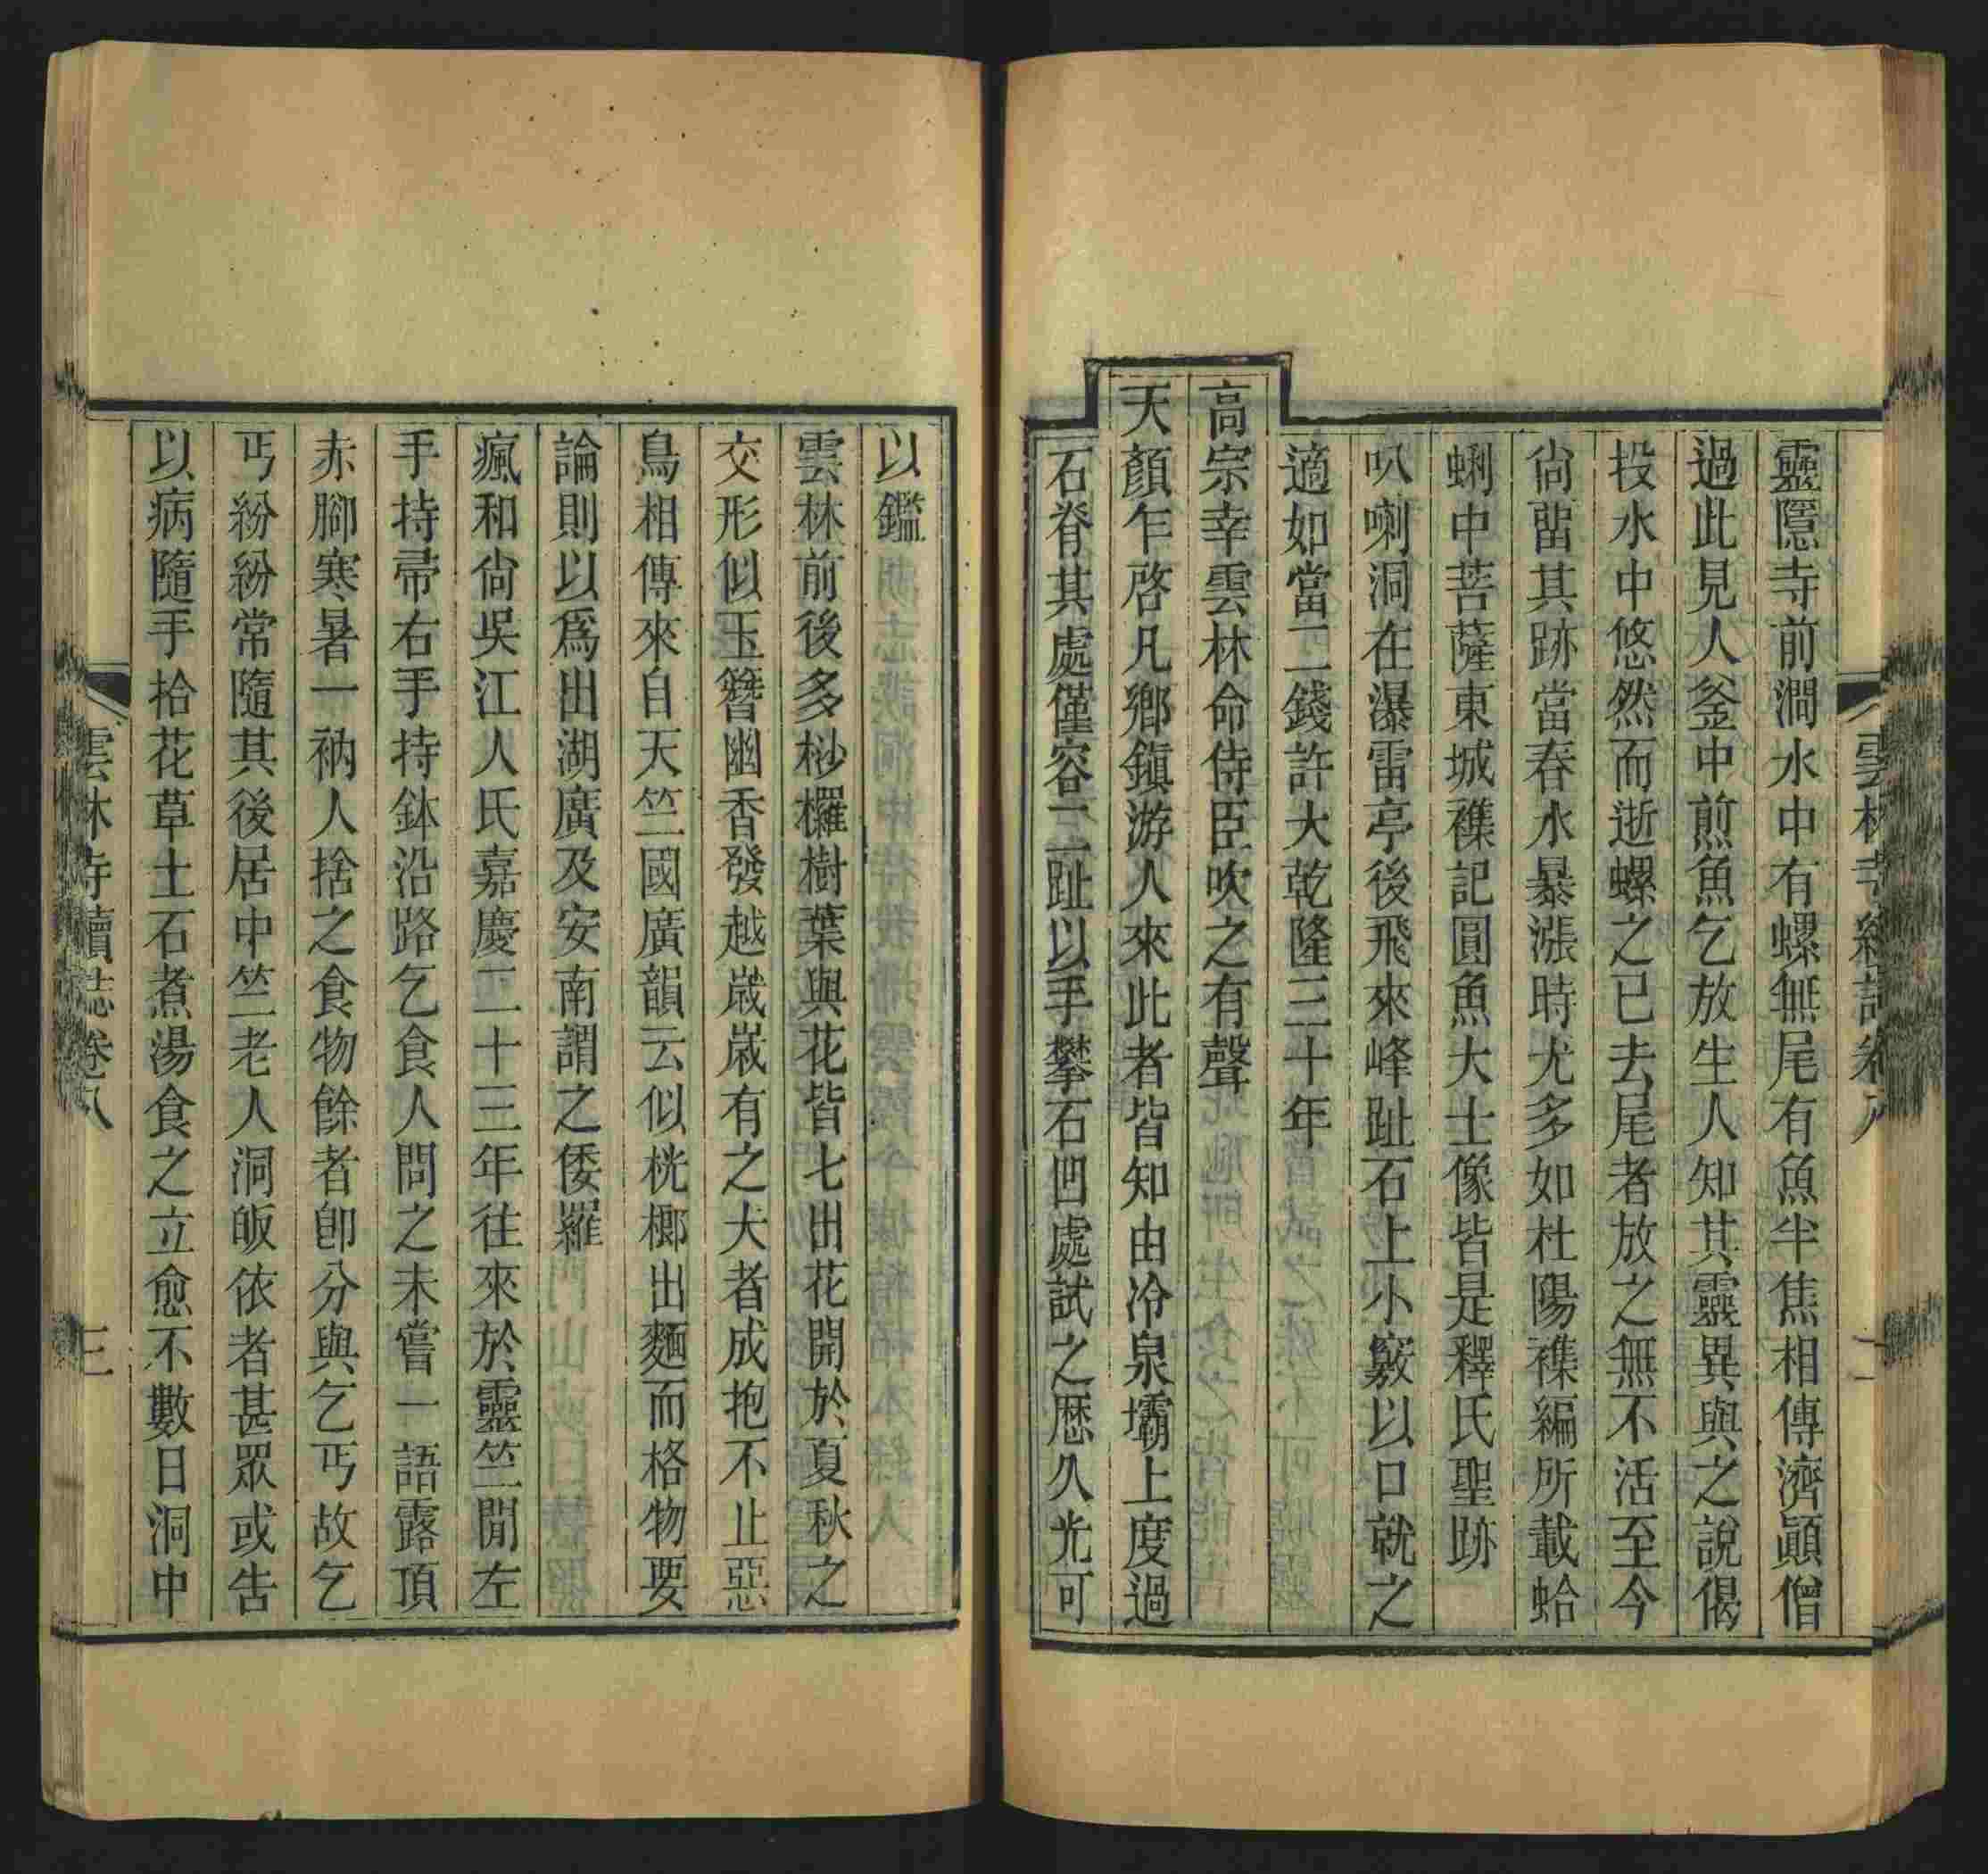 靈隱寺前澗水中有螺無尾有魚半焦相傳濟顚僧
過此見人釜中煎魚乞放生人知其靈異與之說偈
投水中悠然而逝螺之已去尾者放之無不活至今
尙畱其跡當春水暴漲時尤多如杜陽襍編所載蛤
蜊中菩薩東城襍記圓魚大士像皆是釋氏聖跡
叭喇洞在瀑雷亭後飛來峰趾石上小竅以口就之
適如當二錢許大乾隆三十年
高宗幸雲林命侍臣吹之有聲
天顏乍啓凡鄕鎭游人來此者皆知由冷泉壩上度過
石脊其處僅容二趾以手攀石凹處試之歷久光可
以鑑
雲林前後多桫欏樹葉與花皆七出花開於夏秋之
交形似玉簪幽香發越歲歲有之大者成抱不止惡
鳥相傳來自天竺國廣韻云似桄榔出麵而格物要
論則以爲出湖廣及安南謂之倭羅
瘋和尙吳江人氏嘉慶二十三年往來於靈竺閒左
手持帚右手持鉢沿路乞食人問之未嘗一語露頂
赤腳寒暑一衲人捨之食物餘者卽分與乞丐故乞
丐紛紛常隨其後居中竺老人洞皈依者甚眾或告
以病隨手拾花草土石煮湯食之立愈不數日洞中
雲林寺續誌卷八
三